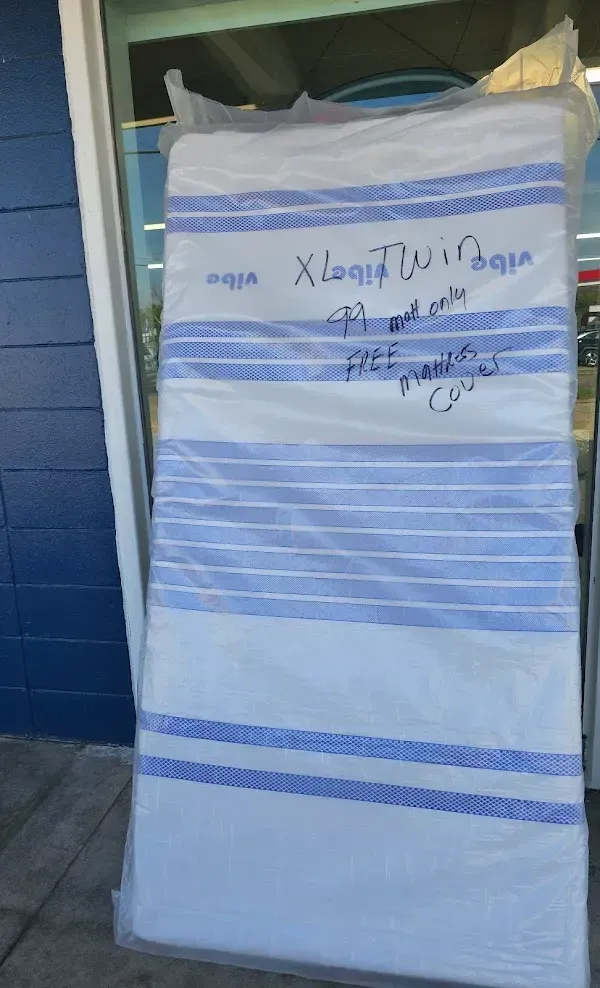 XL Twin
vibe vibe vibe
99 matt only
FREE
mattress
cover